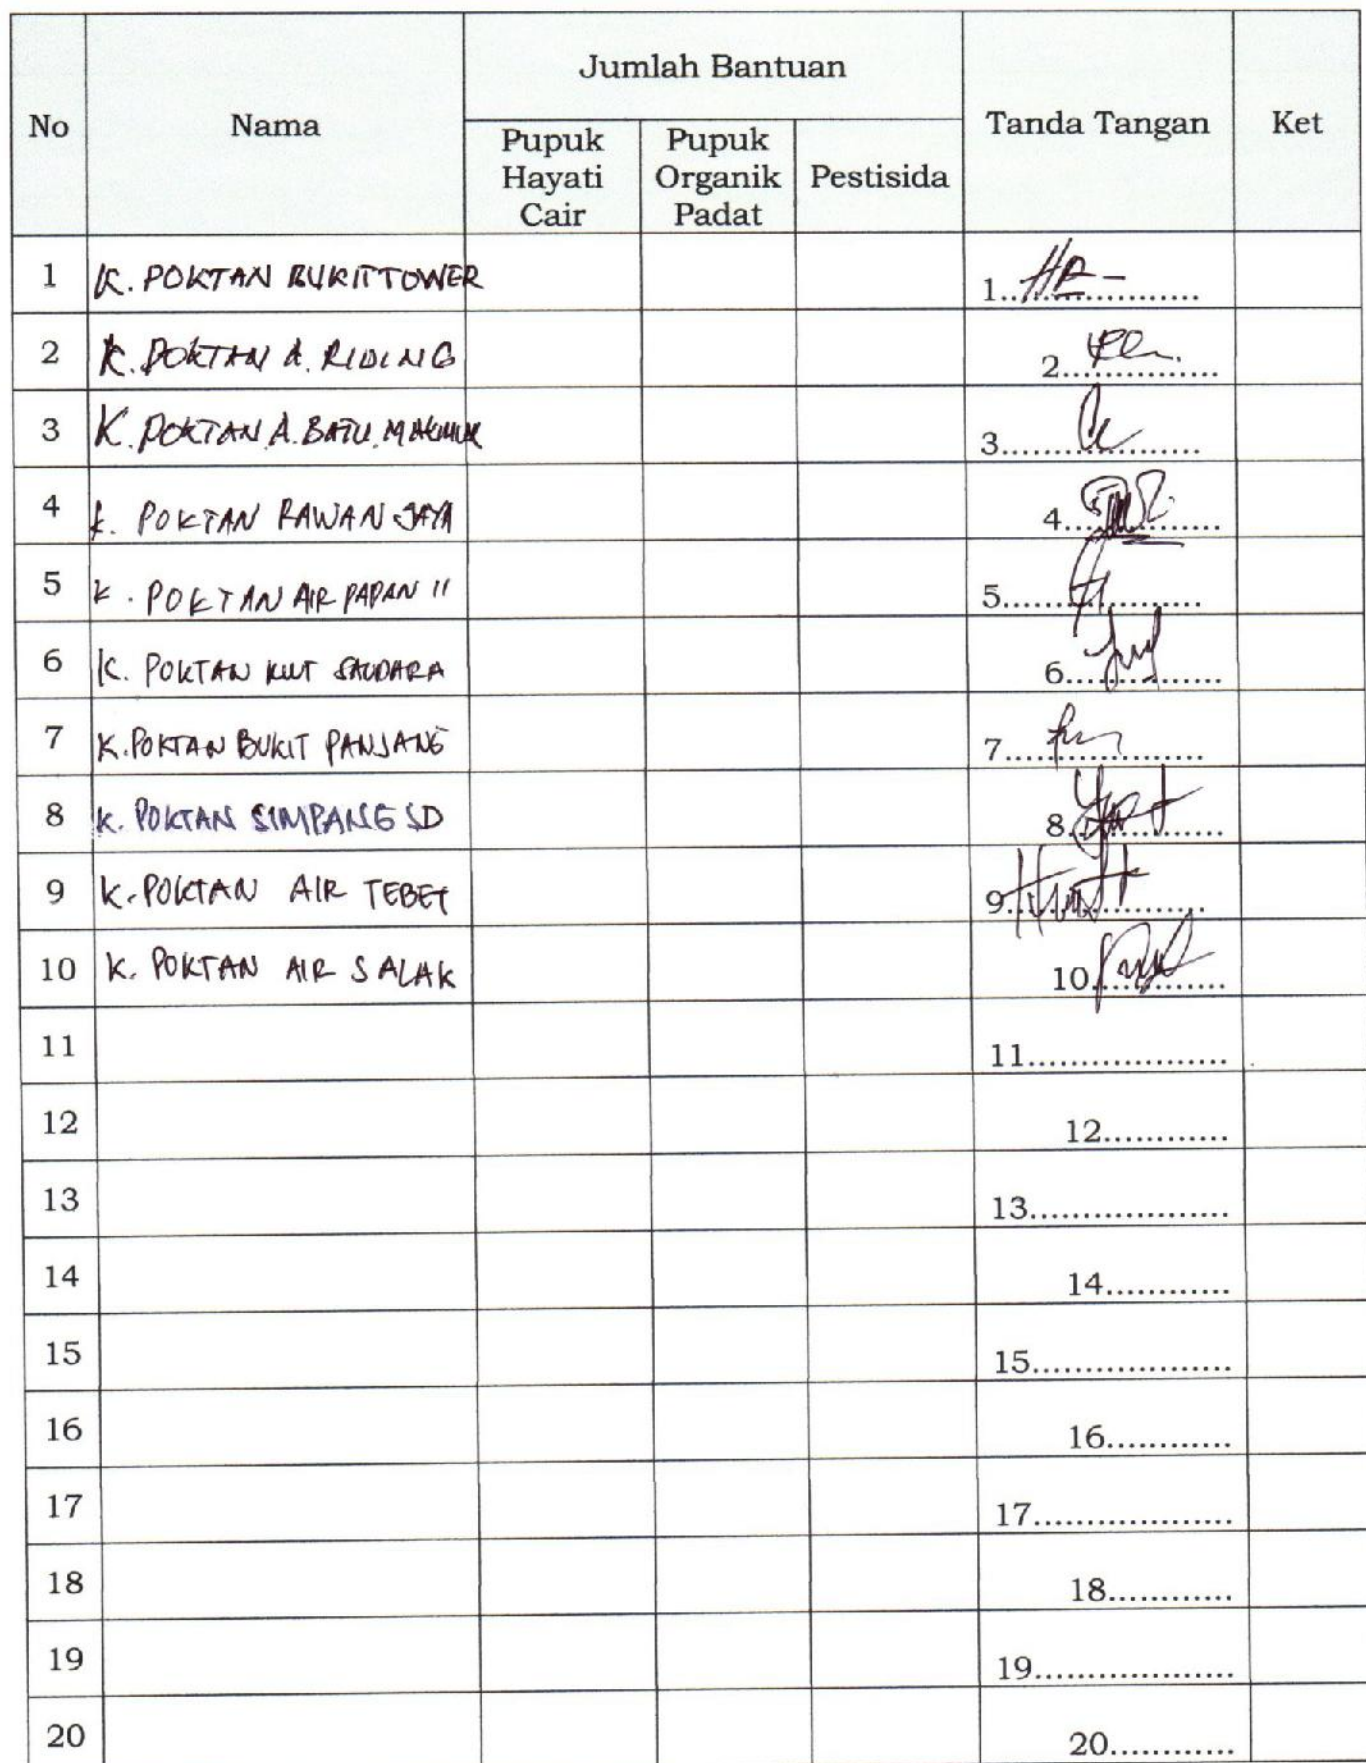 Jumlah Bantuan
No Nama Tanda Tangan Ket
Pupuk Hayati Cair Pupuk Organik Padat Pestisida
1 K. POKTAN BUKIT TOWER 1....................
2 K. POKTAN A. RIDING 2...............
3 K. POKTAN A. BATU MAKMUR 3....................
4 K. POKTAN RAWAN JAYA 4...............
5 K. POKTAN AIR PAPAN II 5....................
6 K. POKTAN KUT SAUDARA 6...............
7 K. POKTAN BUKIT PANJANG 7....................
8 K. POKTAN SIMPANG SD 8...............
9 K. POKTAN AIR TEBET 9....................
10 K. POKTAN AIR SALAK 10............
11 11...................
12 12............
13 13...................
14 14............
15 15...................
16 16............
17 17...................
18 18............
19 19...................
20 20............